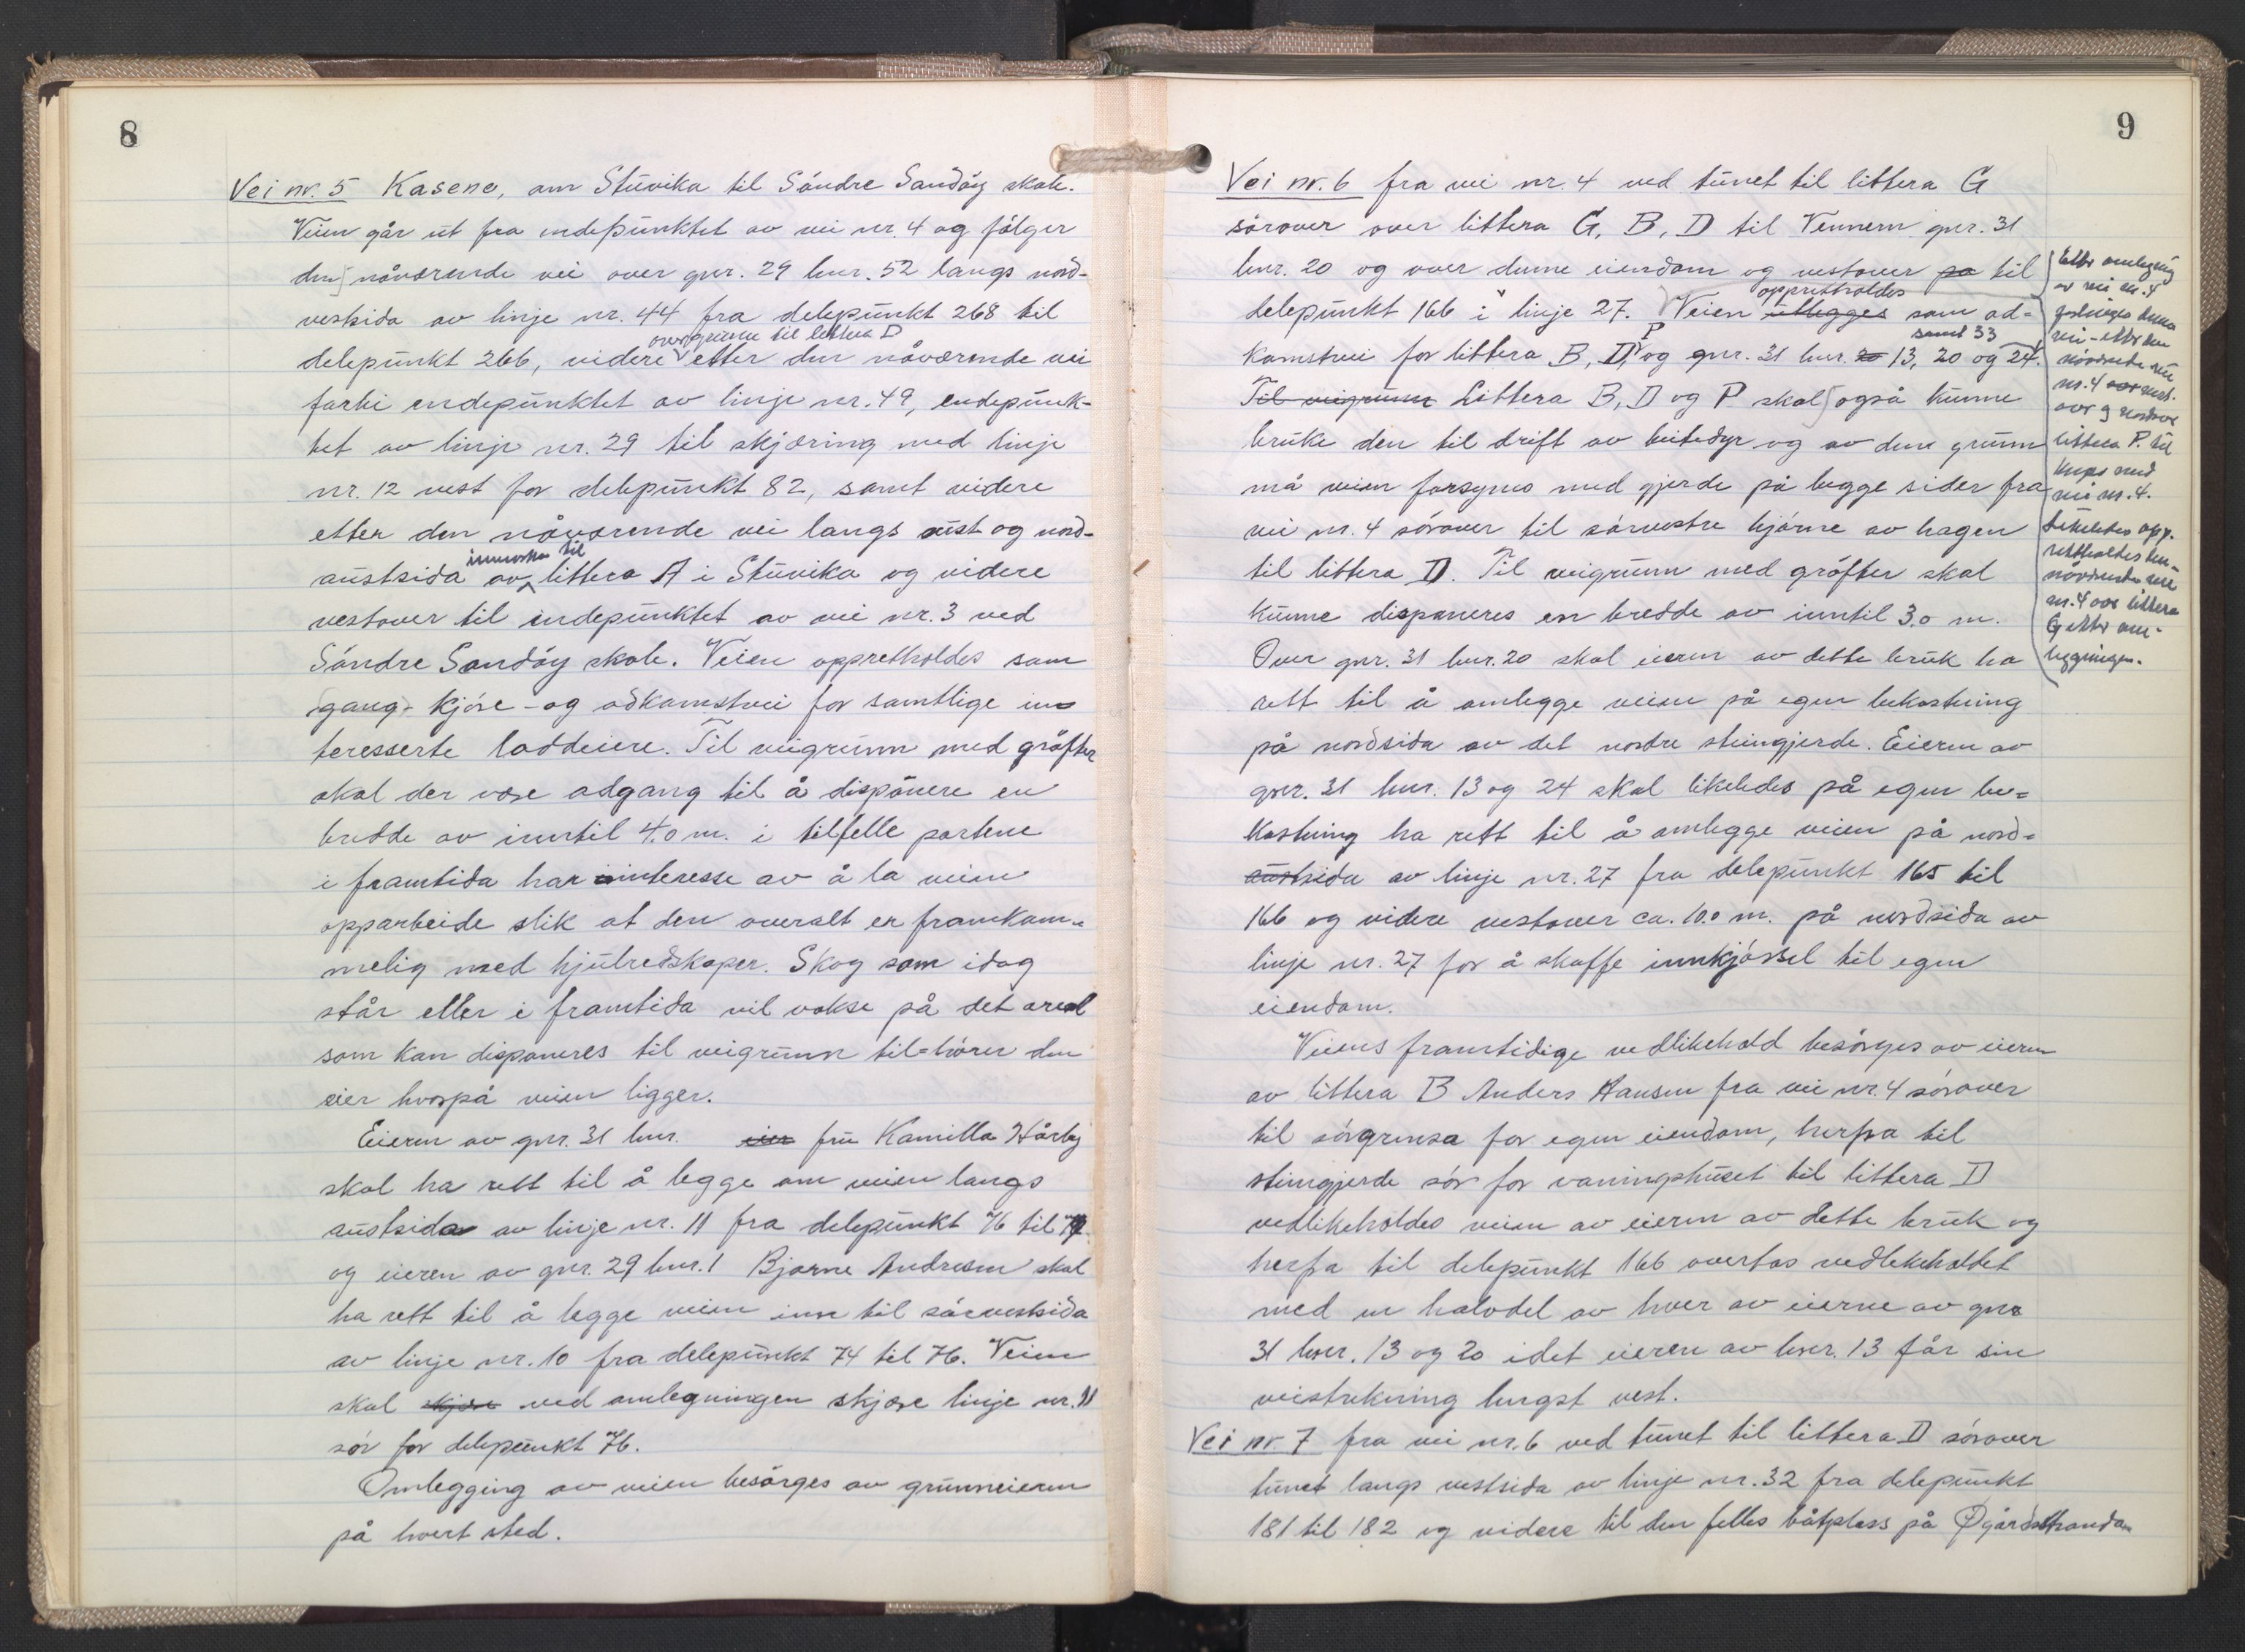 8
Vei nr. 5 Kasene, om Stuvika til Söndre Sandöy skole.
Veien går ut fra endepunktet av vei nr. 4 og fölger
den nåværende vei over gnr. 29 bnr. 52 langs nord-
vestsida av linje nr. 44 fra delepunkt 268 til
over grunn til littera D
delepunkt 266, videre etter den nåværende vei
forbi endepunktet av linje nr. 49, endepunk-
tet av linje nr. 29 til skjæring med linje
nr. 12 vest for delepunkt 82, samt videre
etter den nåværende vei langs aust og nord-
innmarka til
austsida av littera A i Stuvika og videre
vestover til endepunktet av vei nr. 3 ved
Söndre Sandöy skole. Veien opprettholdes som
gang- kjöre- og adkomstvei for samtlige in-
teresserte loddeiere. Til veigrunn med gröfter
skal der være adgang til å disponere en
bredde av inntil 4.0 m. i tilfelle partene
i framtida har interesse av å la veien
opparbeide slik at den overalt er framkom-
melig med hjulredskaper. Skog som idag
står eller i framtida vil vokse på det areal
som kan disponeres til veigrunn til-hörer den
eier hvorpå veien ligger.
Eieren av gnr. 31 bnr. eier fru Kamilla Hårby
skal ha rett til å legge om veien langs
austsida av linje nr. 11 fra delepunkt 76 til
og eieren av gnr. 29 bnr. 1 Bjarne Andresen skal
ha rett til å legge veien inn til sörvestsida
av linje nr. 10 fra delepunkt 74 til 76. Veien
skal skjære ved omlegningen skjære linje nr. 11
sör for delepunkt 76.
Omlegging av veien besörges av grunneieren
på hvert sted.
9
Vei nr. 6 fra vei nr. 4 ved tunet til littera G
sörover over littera G, B, D til Vennern gnr. 31
bnr. 20 og over denne eiendom og vestover på til
delepunkt 166 i linje 27. Veien utlegges som ad-
opprettholdes
P samt 33
komstvei for littera B, D, og gnr. 31 bnr. 20 13, 20 og 24.
Til veigrunn Littera B, D og P skal også kunne
bruke den til drift av beitedyr og av den grunn
må veien forsynes med gjerde på begge sider fra
vei nr. 4 sörover til sörvestre hjörne av hagen
til littera D. Til veigrunn med gröfter skal
kunne disponeres en bredde av inntil 3.0 m.
Over gnr. 31 bnr. 20 skal eieren av dette bruk ha
rett til å omlegge veien på egen bekostning
på nordsida av det nordre steingjerde. Eieren av
gnr. 31 bnr. 13 og 24 skal likeledes på egen be-
kostning ha rett til å omlegge veien på nord-
austsida av linje nr. 27 fra delepunkt 165 til
166 og videre vestover ca. 10.0 m. på nordsida av
linje nr. 27 for å skaffe innkjörsel til egen
eiendom.
Veiens framtidige vedlikehold besörges av eieren
av littera B Anders Hansen fra vei nr. 4 sörover
til sörgrensa for egen eiendom, herfra til
steingjerde sör for vaningshuset til littera D
vedlikeholdes veien av eieren av dette bruk og
herfra til delepunkt 166 overtas vedlikeholdet
med en halvdel av hver av eierne av gnr
31 bnr. 13 og 20 idet eieren av bnr. 13 får sin
veistrekning lengst vest.
Vei nr. 7 fra vei nr. 6 ved tunet til littera D sörover
tunet langs vestsida av linje nr. 32 fra delepunkt
181 til 182 og videre til den felles båtplass på Øgårdstranda
Etter omlegning
av vei nr. 4
forlenges denne
vei - etter den
nåværende vei
nr. 4 vest-
over g nordover
littera P. til
kryss med
vei nr. 4.
Likeledes opp-
rettholdes den
nåværende vei
nr. 4 over littera
G etter om-
legningen.